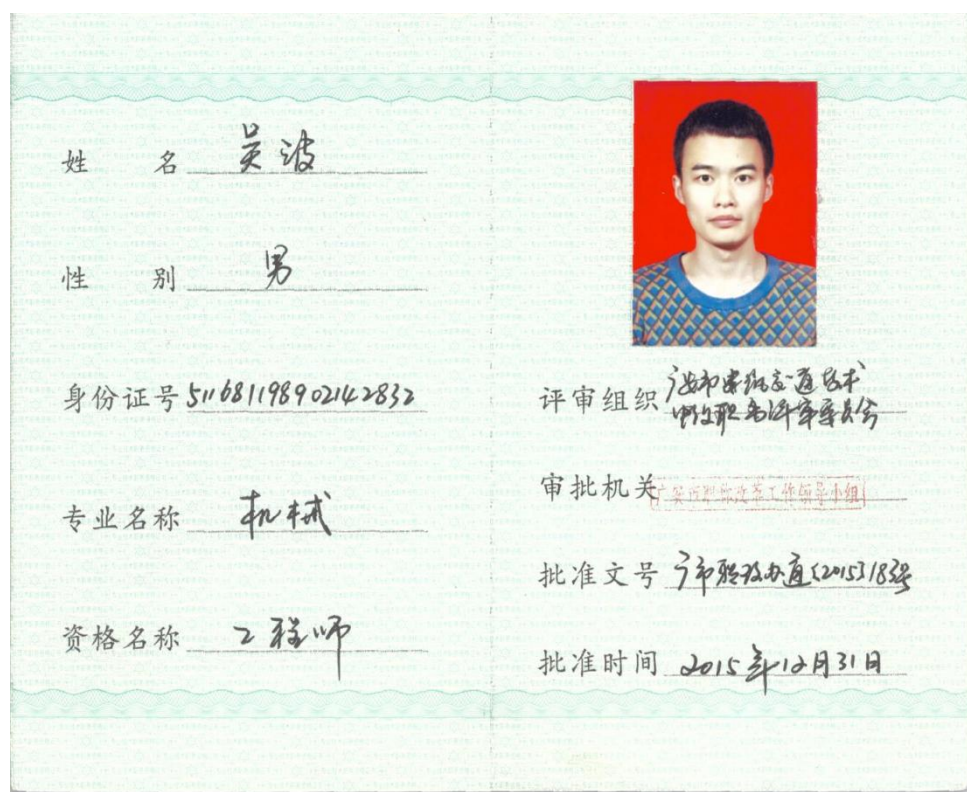 姓 名 吴波
性 别 男
身份证号 511681198902142832
专业名称 机械
资格名称 工程师
评审组织 广安市岳池交通技术
中级职务评审委员会
审批机关 广安市职称改革工作领导小组
批准文号 广市职改办通〔2015〕183号
批准时间 2015年12月31日